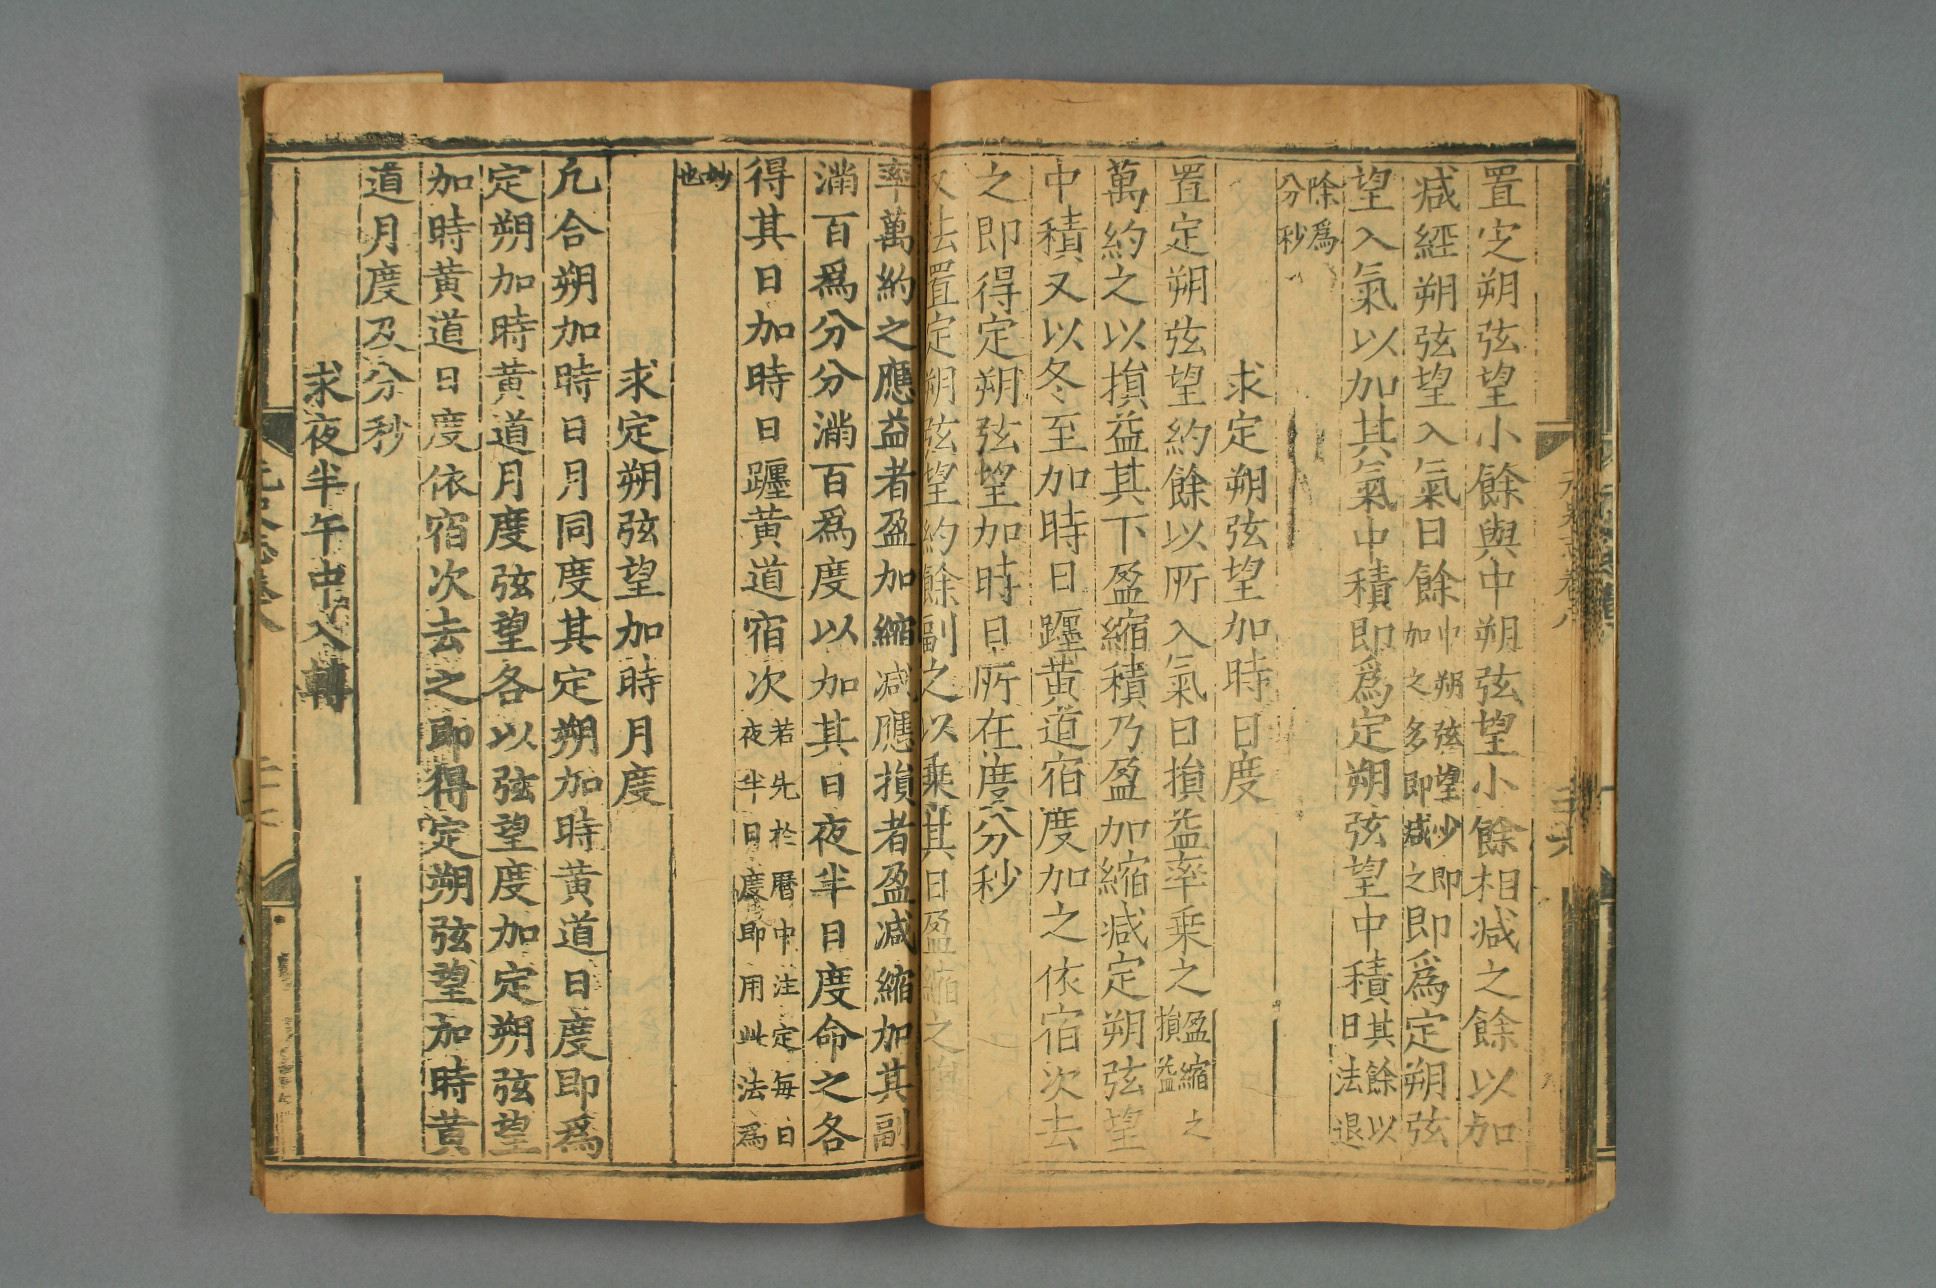 置定朔弦望小餘與中朔弦望小餘相减之餘以加
减經朔弦望入氣日餘中朔弦望少即加之多即减之即爲定朔弦
望入氣以加其氣中積即爲定朔弦望中積其餘以日法退
除爲分秒
求定朔弦望加時日度
置定朔弦望約餘以所入氣日損益率乗之盈縮之損益
萬約之以損益其下盈縮積乃盈加縮减定朔弦望
中積又以冬至加時日躔黄道宿度加之依宿次去
之即得定朔弦望加時日所在度分秒
又法置定朔弦望約餘副之以乗其日盈縮之損益
率萬約之應益者盈加縮减應損者盈减縮加其副
滿百爲分分滿百爲度以加其日夜半日度命之各
得其日加時日躔黄道宿次若先於曆中注定每日夜半日度即用此法爲
妙也
求定朔弦望加時月度
凡合朔加時日月同度其定朔加時黄道日度即爲
定朔加時黄道月度弦望各以弦望度加定朔弦望
加時黄道日度依宿次去之即得定朔弦望加時黄
道月度及分秒
求夜半午中入轉